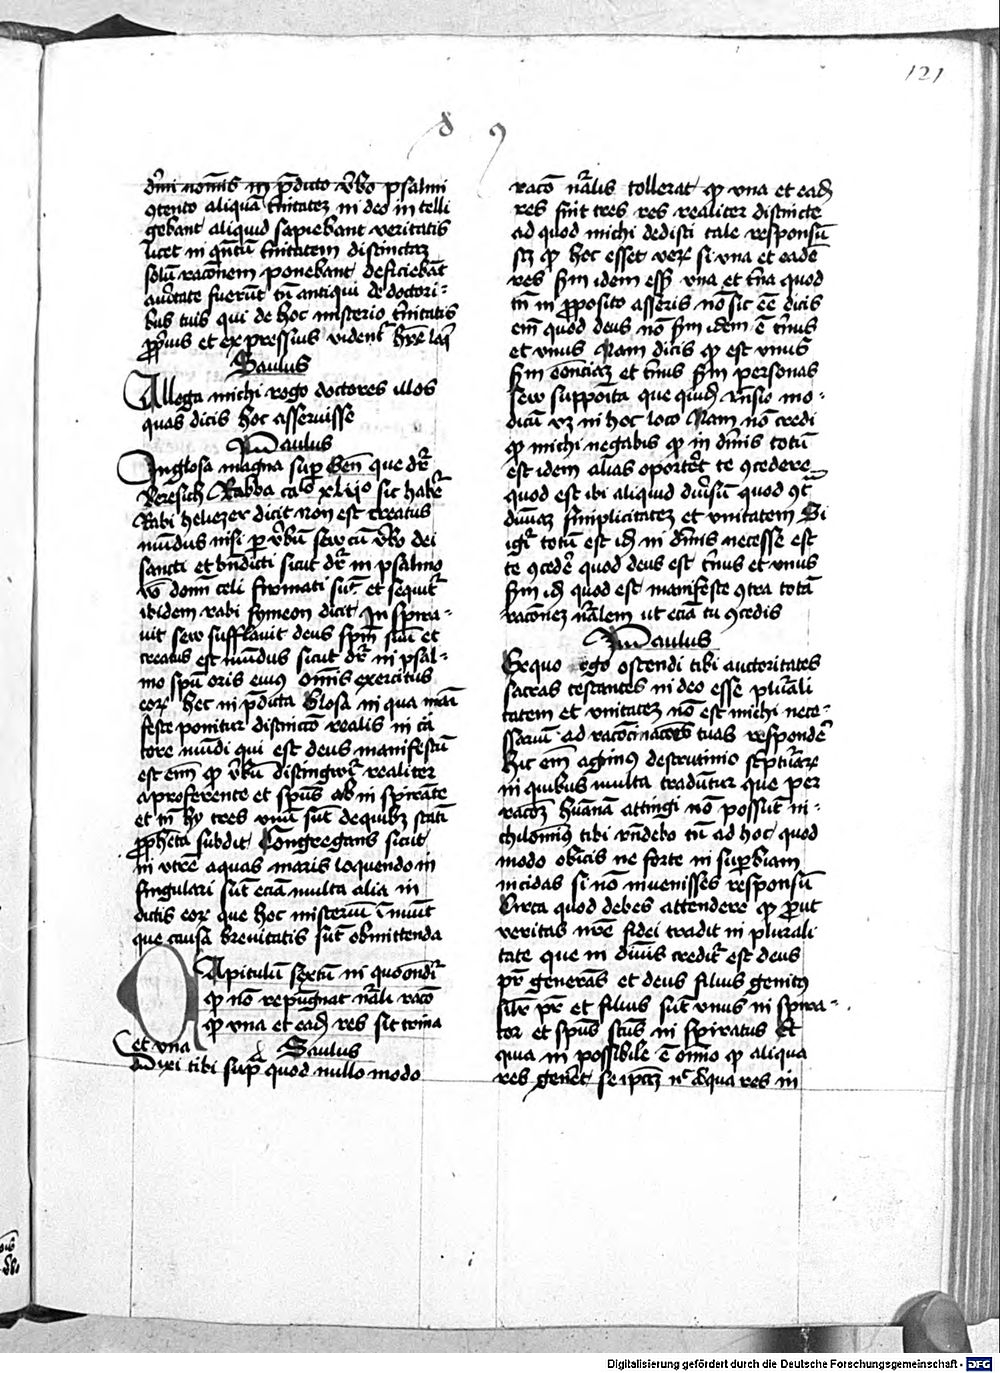 121
d 9
diui nomis in p̄dicto v̄bo psalmi
ↄtento aliquā t̄nitatez in deo in telli
gebant aliquid sapiebant veritatis
licet in q̄ntū t̄nitatem distinctaz
solū rac̄onem ponebant deficiebāt
aūtate fuerūt tn̄ antiqui de doctori-
bus tuis qui de hoc misterio t̄nitatis
ꝓpius et expressius vident̄ hr̄e loq̄
Saulus
Allega michi rogo doctores illos
quas dicis hoc asseruisse
Paulus
In glosa magna sup Gen̄ que dr̄
Beresich Rabba ca͞ xlvijo sic habet̄
Rabi heliezer dicit non est creatus
mūdus nisi p v̄bū seu cū v̄bo dei
sancti et bn̄dicti sicut dr̄ in psalmo
v̄o domī celi firmati sūt et sequit̄
ibidem rabi symeon dicit In spira-
uit seu sufflauit deus sp̄m suū et
creatus est mūdus sicut dr̄ in psal-
mo spū oris eius om̄is exercitus
eorꝫ hec in p̄dicta Glosa in qua mai
feste ponitur distinctio realis in cā
tore mūdi qui est deus manifestū
est em̄ ꝙ v̄bū distingwit̄ realiter
a proferente et spūs ab in spirāte
et tn̄ hy tres vnū sūt de quibꝫ statī
ꝓpheta subdit Congregans sicut
in vtrē aquas maris loquendo in
singulari sūt eciā multa alia in
dictis eorꝫ que hoc misteriū īnuūt
que causa breuitatis sūt obmittenda
Capitulū sextū in quo ondit̄
ꝙ nō repūgnat nr̄ali rac̄o
ꝙ vna et ead res sit trina
et vna Saulus
Dixi tibi sup̄ quod nullo modo
rac̄o nr̄alis tollerat ꝙ vna et ead
res sint tres res realiter distincte
ad quod michi dedisti tale responsū
scz ꝙ hec esset verꝫ si vna et eadē
res sm̄ idem ess; vna et t̄na quod
tn̄ in ꝓposito asseris nō sic eē dicis
em̄ quod deus nō sm̄ idem ē t̄nus
et vnus Nam dicis ꝙ est vnus
sm̄ eēnciaz et t̄nus sm̄ personas
seu suppoita que quid r̄nsio mo-
dicū vz in hoc loco Nam nō credi
ꝙ michi negabis ꝙ in diuīs totū
est idem alias oportet te ↄcedere
quod est ibi aliquid diūsū quod ↄt̄
diuinaz simplicitatez et vnitatem Si
igit̄ totū est id in diuīs necesse est
te ↄcedē quod deus est t̄nus et vnus
sm̄ id quod est manifeste ↄtra totā
rac̄onez nr̄alem ut eciā tu ↄcedis
Paulus
Ex quo ego ostendi tibi auctoritates
sacras testantes in deo esse plurali
tatem et vnitatez nō est michi nece-
ssariū ad rac̄ocinac̄ones tuas respondē
hic em̄ agimus de scrutinio scpturarꝫ
in quibus multa tradūtur que per
rac̄oez hūanā attingi nō possūt ni-
chilominus tibi rn̄debo tn̄ ad hoc quod
modo obicis ne forte in supbiam
incidas si nō inuenisses responsū
Circa quod debes attendere ꝙ ꝓut
veritas nr̄e fidei tradit in plurali
tate que in diuīs credit̄ est deus
pr̄ generās et deus filius genitꝰ
silr̄ pr̄ et filius sūt vnus in spira-
tor et spūs scūs in spiratus Et
quia in possibile ē om̄io ꝙ aliqua
res gen̄et se ipsaz nc̄ aliqua res in
Digitalisierung gefördert durch die Deutsche Forschungsgemeinschaft - DFG